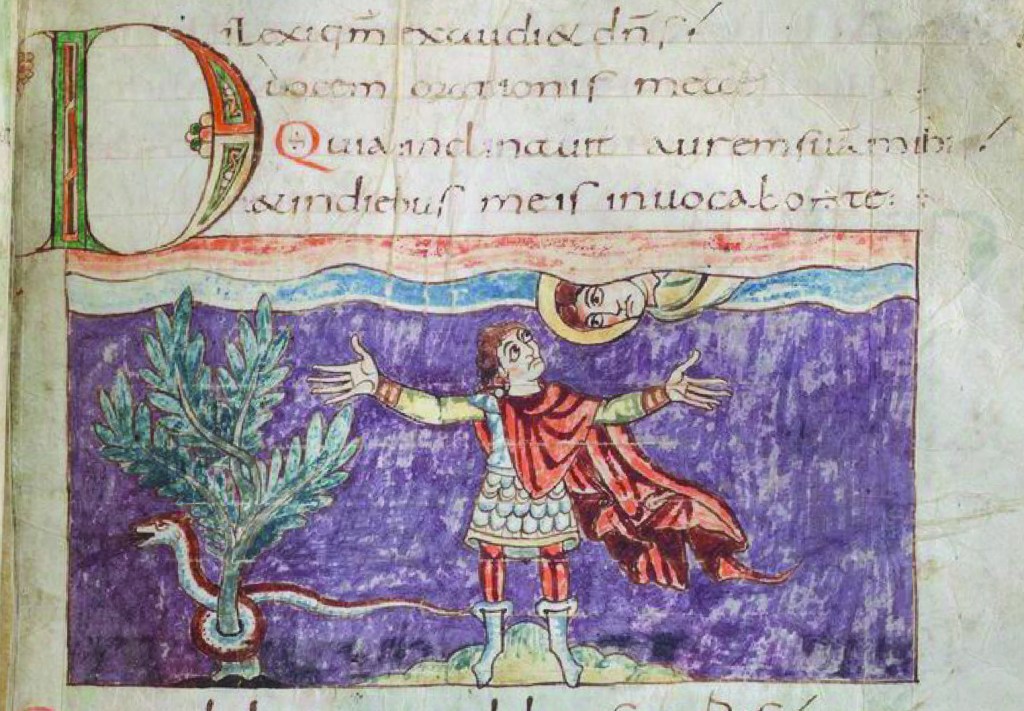 Dilexi qm̄ exaudi& dn̄s
vocem orationis meae
Quia inclinauit aurem suā mihi
& in diebus meis inuocabo te: